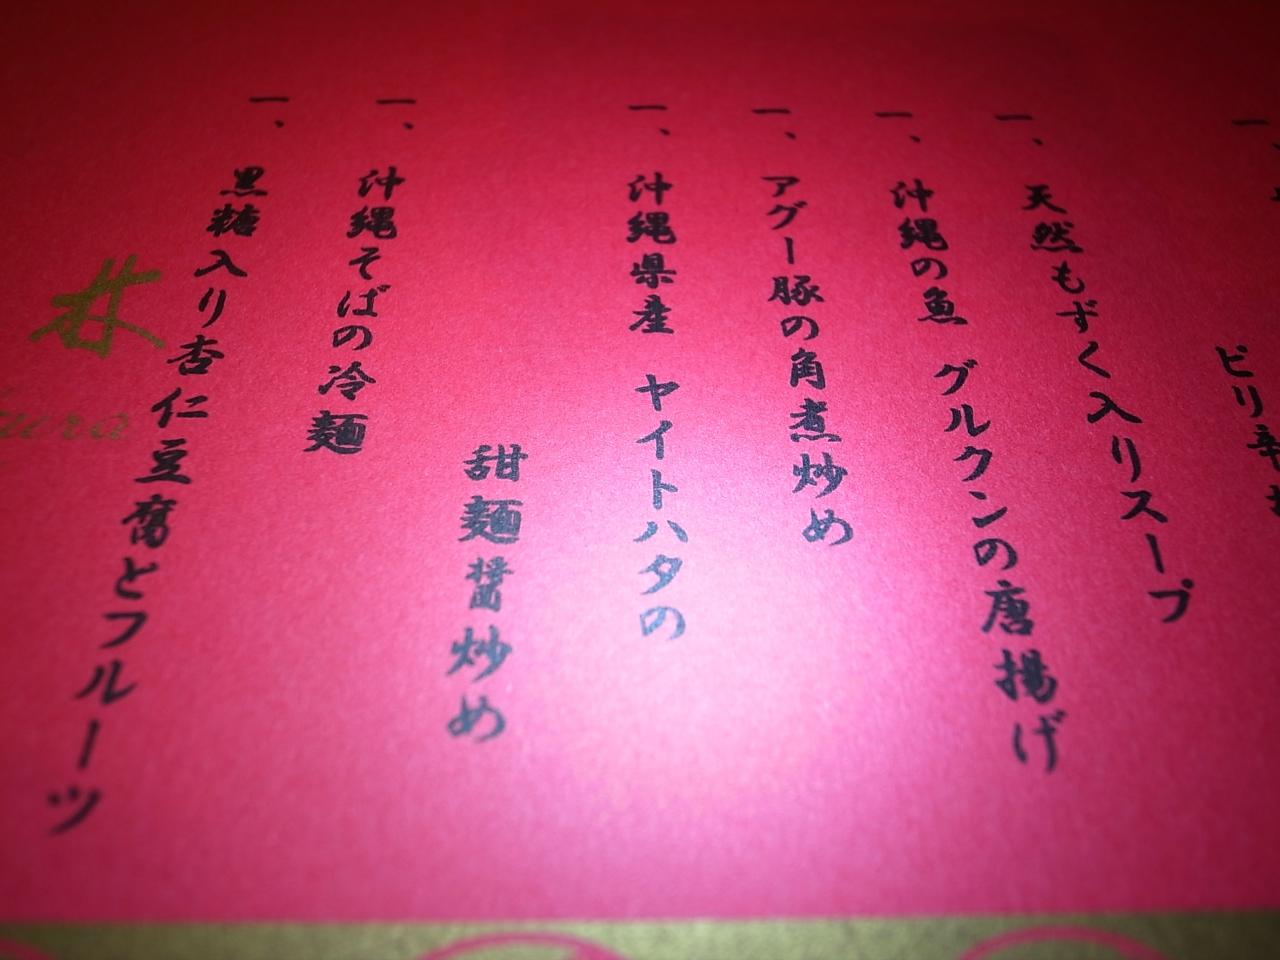 ピリ辛
一、天然もずく入りスープ
一、沖縄の魚 グルクンの唐揚げ
一、アグー豚の角煮炒め
一、沖縄県産 ヤイトハタの
甜麺醤炒め
一、沖縄そばの冷麺
一、黒糖入り杏仁豆腐とフルーツ
林